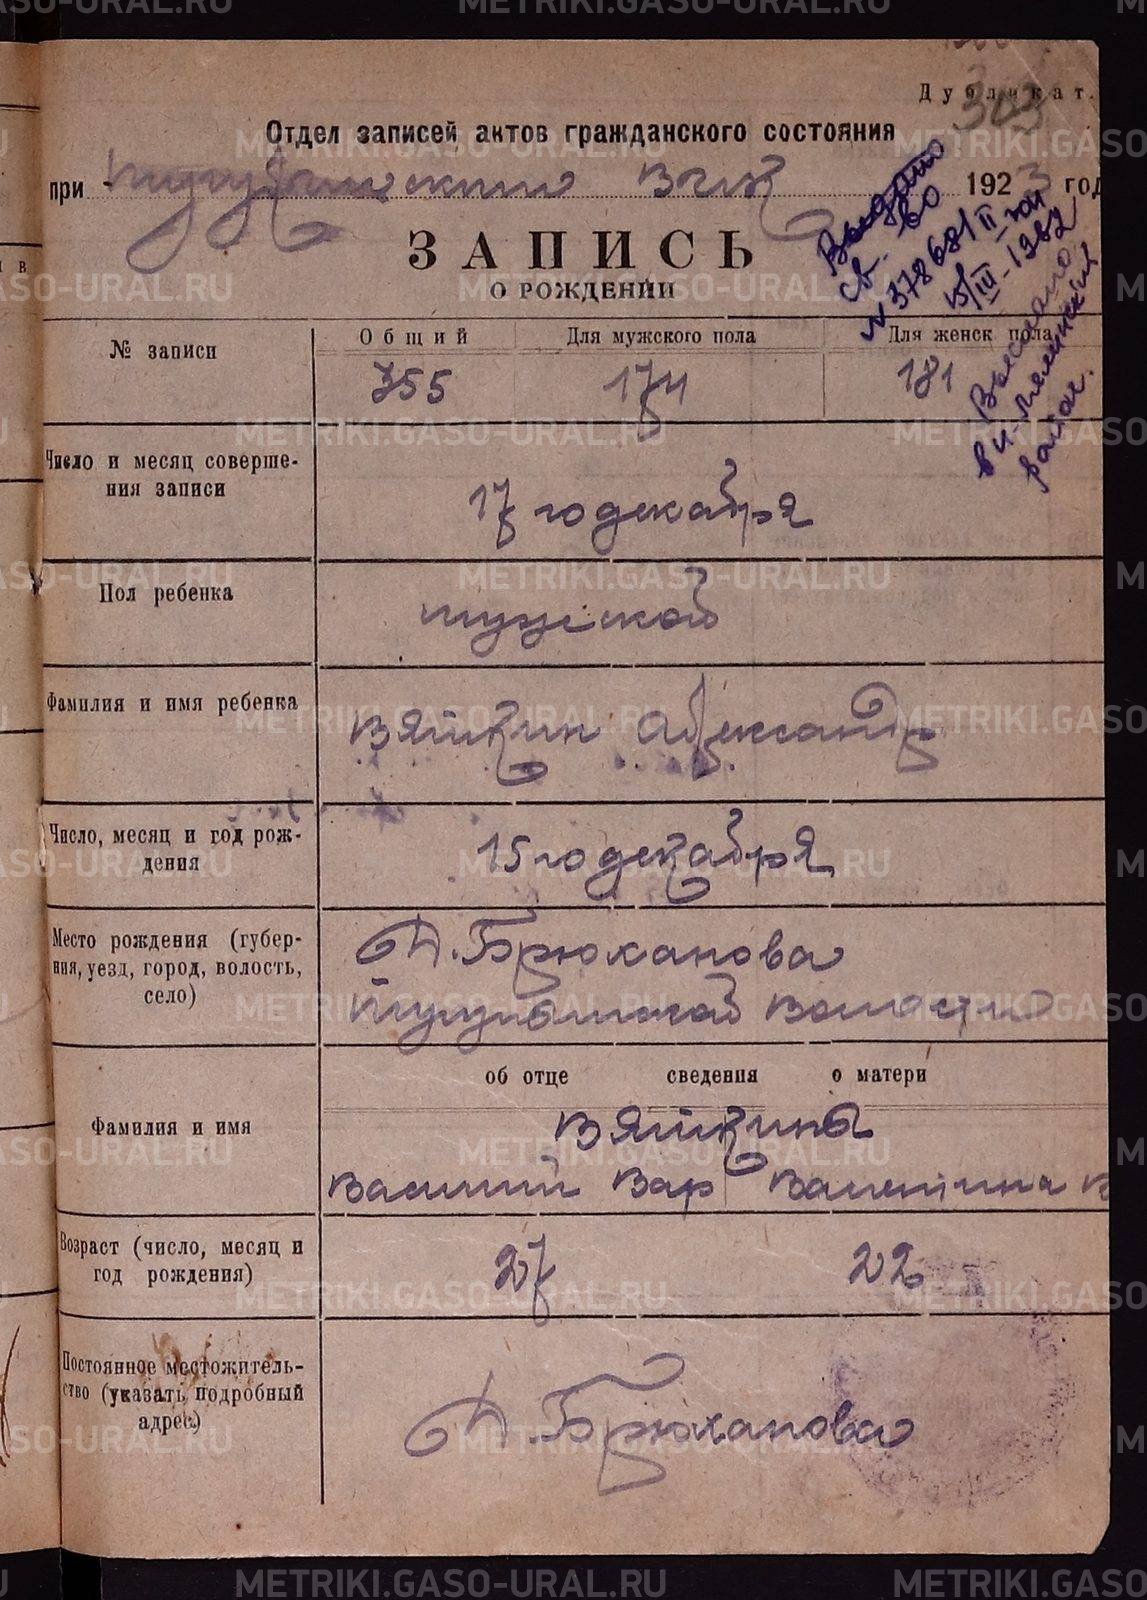 Дубликат.
303
Отдел записей актов гражданского состояния
при Тугулымским Вик 1923 год
Выдано
св. во
№ 378681 II
15/III-1962
Выслано
в И-
ЗАПИСЬ
О РОЖДЕНИИ
№ записи
Общий Для мужского пола Для женск пола
355 174 181
Число и месяц соверше-
ния записи
17 го декабря
Пол ребенка
мужской
Фамилия и имя ребенка
Вяткин Александр
Число, месяц и год рож-
дения
15 го декабря
Место рождения (губер-
ния, уезд, город, волость,
село)
Д. Брюханова
волости
об отце сведения о матери
Фамилия и имя
Вяткина
Василий Вар Валентина В
Возраст (число, месяц и
год рождения)
27 22
Постоянное местожитель-
ство (указать подробный
адрес)
Д. Брюханова
METRIKI.GASO-URAL.RU